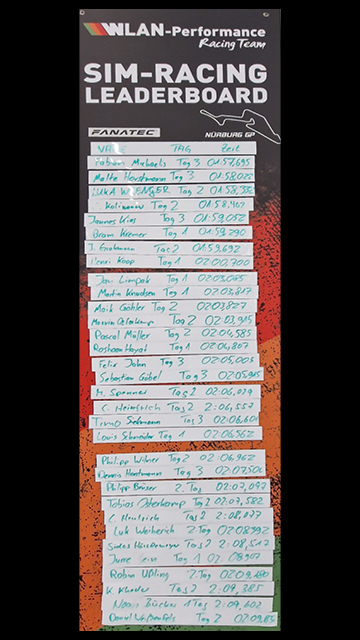 WLAN-Performance
Racing Team
SIM-RACING
LEADERBOARD
FANATEC
NÜRBURG GP
TAG Zeit
Fabian Michaels Tag 3 01:57,695
Malte Horstmann Tag 3 01:58,022
LUKA Tag 2 01:58,332
Tag 2 01:58,467
Jannes Kies Tag 3 01:59,052
Bram Kremer Tag 1 01:59,290
Tag 2 01:59,692
Henri Koop Tag 1 02:00,700
Jan Limpak Tag 1 02:03,045
Martin Knudsen Tag 1 02:03,817
Maik Göhler Tag 2 02:03,827
Marvin Tag 2 02:03,915
Pascal Müller Tag 2 02:04,585
Tag 1 02:04,807
Felix John Tag 3 02:05,003
Sebastian Göbel Tag 3 02:05,915
M. Spanner Tag 2 02:06,029
C. Heimfrich Tag 2 2:06,557
Timo Tag 3 02:06,601
Louis Schneider Tag 1 02:06,962
Philipp Wilmer Tag 2 02:06,962
Dennis Horstmann Tag 3 02:07,500
Philipp 2. Tag 02:07,097
Tobias Osterkamp Tag 2 02:07,582
C. Tag 2 2:08,077
Luk Weiherich 2. Tag 02:08,392
Tag 2 2:08,547
Tag 1 02
Robin Ußling 2. Tag 02:09,280
K. Kheder Tag 2 2:09,385
Noah Bücker 1 Tag 2:09,602
Daniel Weißenfels 2. Tag